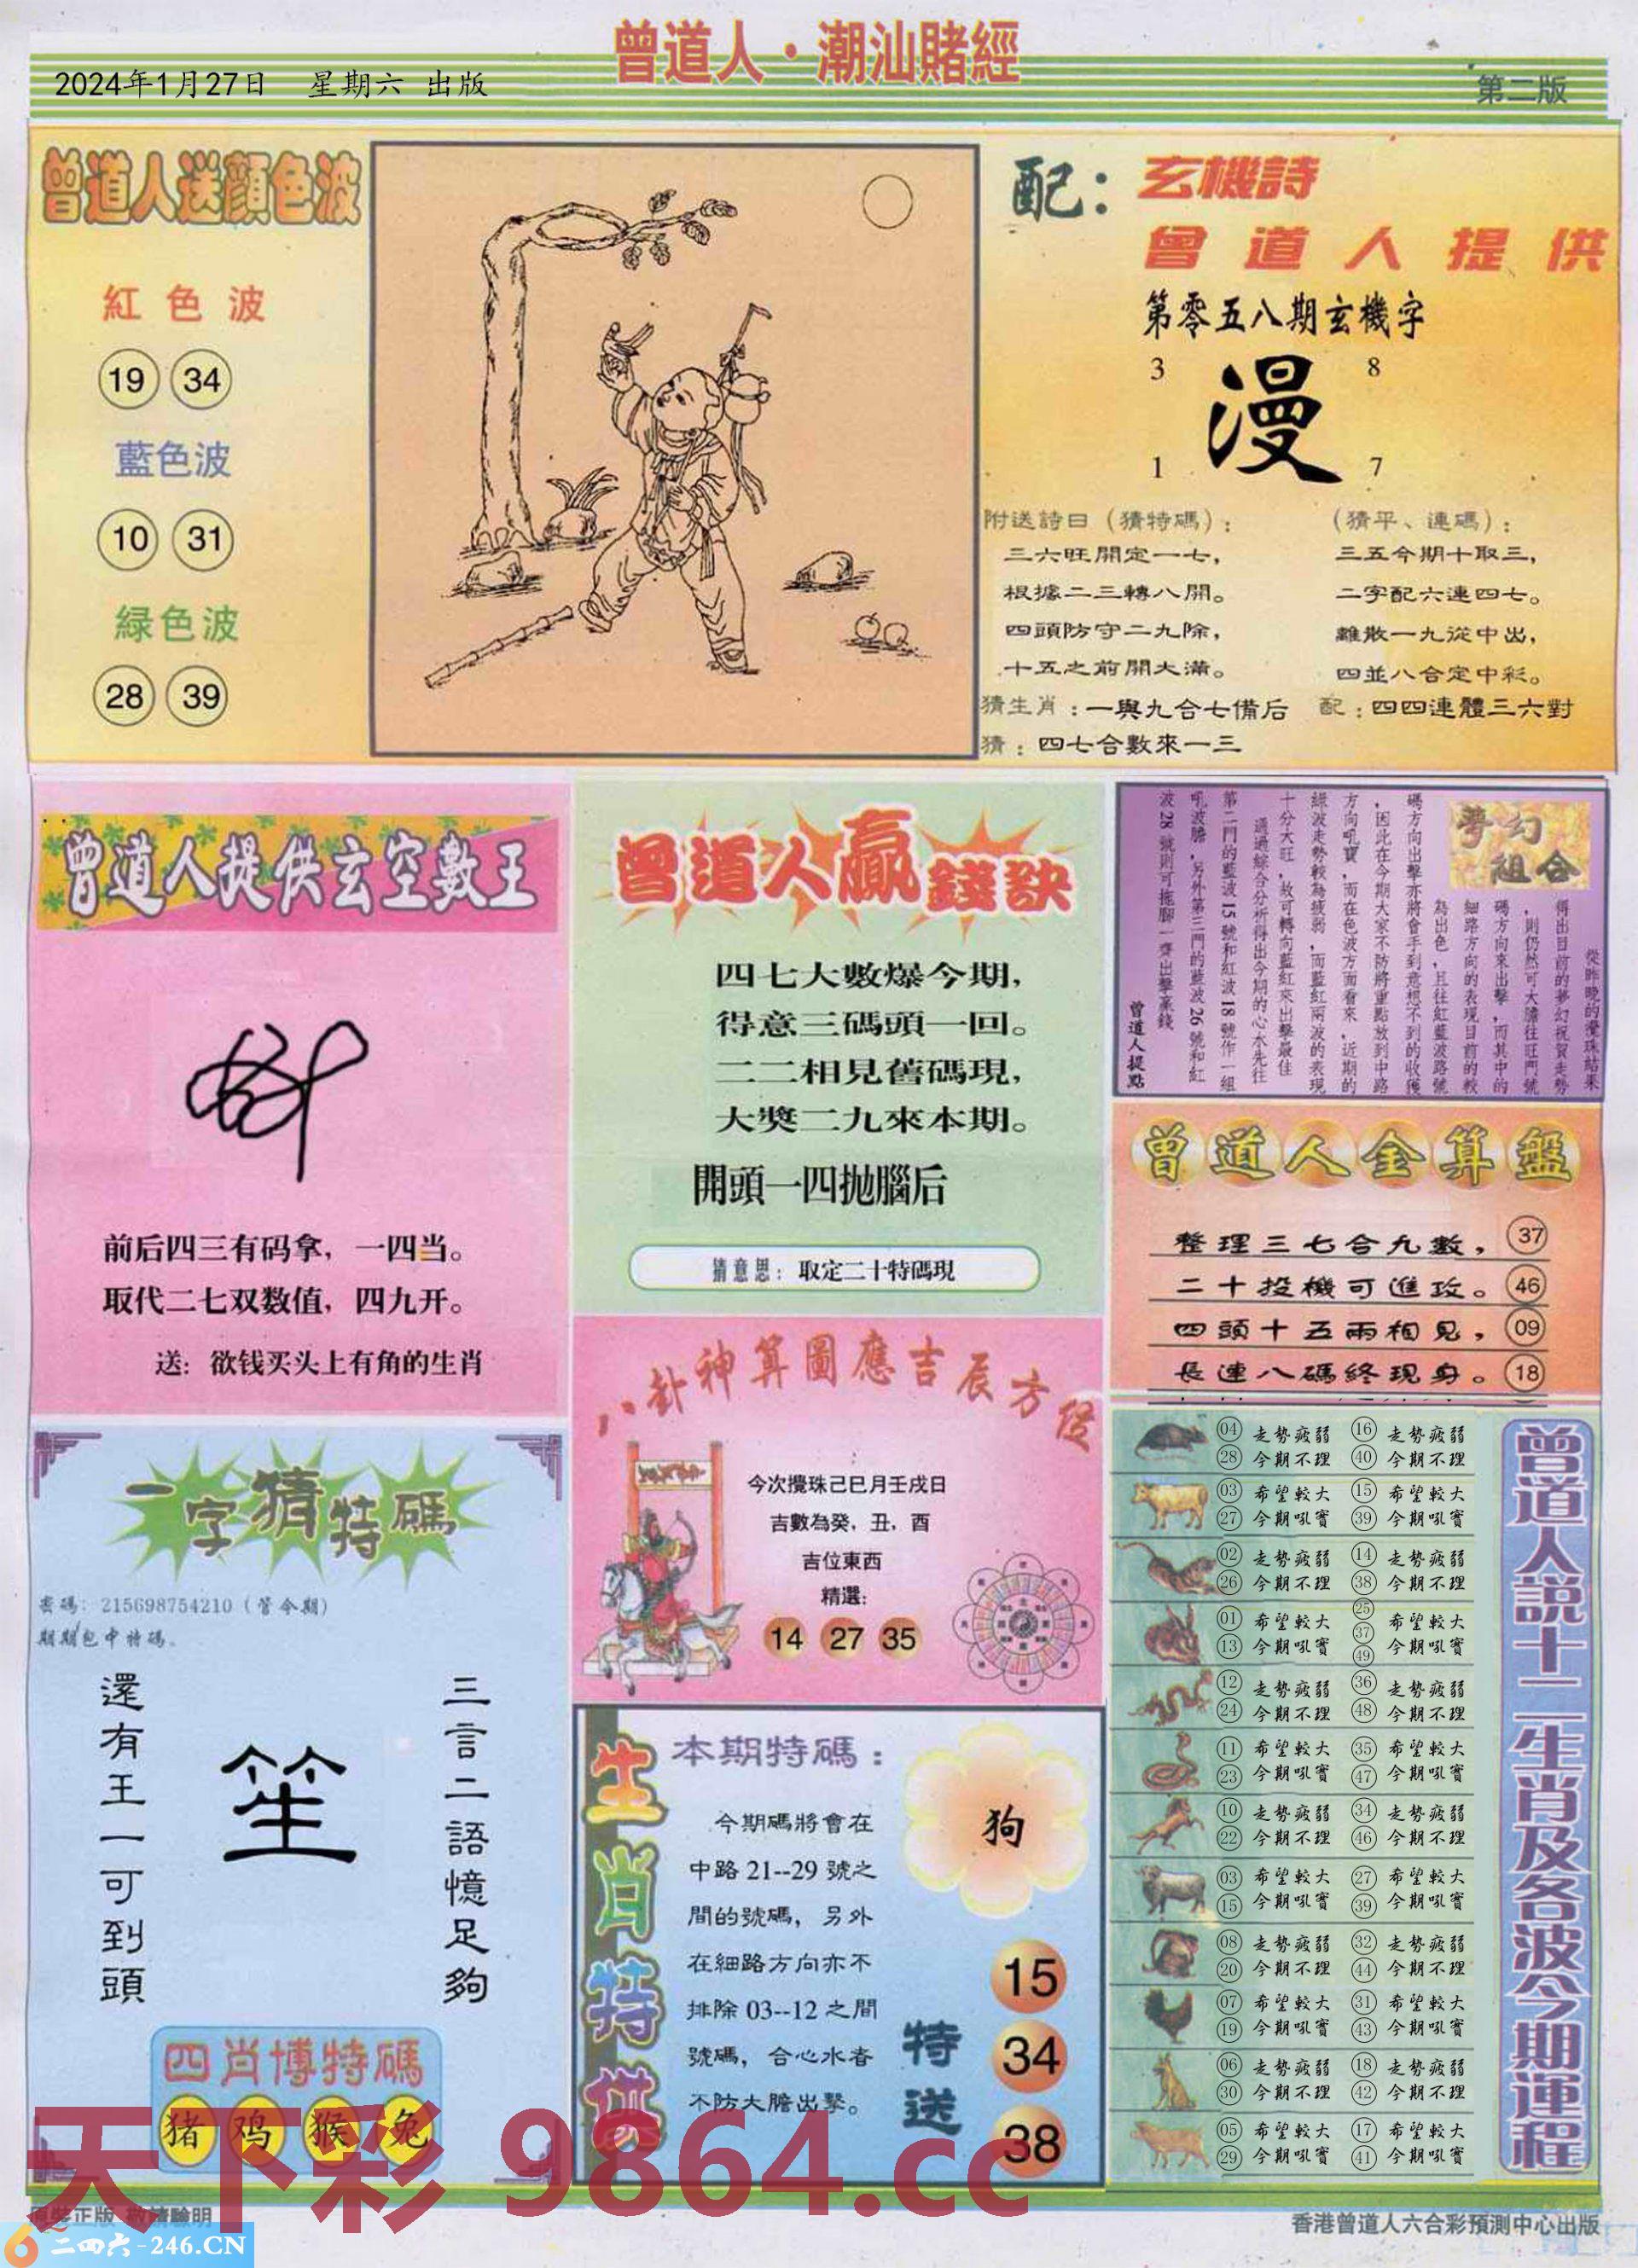 曾道人·潮汕賭經
2024年1月27日 星期六 出版
第二版
曾道人送顔色波
紅色波
19 34
藍色波
10 31
緑色波
28 39
配：玄機詩
曾道人提供
第零五八期玄機字
3 8
漫
1 7
附送詩日（猜特碼）：
三六旺開定一七，
根據二三轉八開。
四頭防守二九除，
十五之前開大滿。
（猜平、連碼）：
三五今期十取三，
二字配六連四七。
離散一九從中出，
四並八合定中彩。
猜生肖：一與九合七備后 配：四四連體三六對
猜：四七合數來一三
曾道人提供玄空數王
前后四三有码拿，一四当。
取代二七双数值，四九开。
送：欲钱买头上有角的生肖
曾道人贏錢訣
四七大數爆今期，
得意三碼頭一回。
二二相見舊碼現，
大獎二九來本期。
開頭一四拋腦后
猜意思：取定二十特碼現
夢幻
組合
從昨晚的攪珠結果
得出目前的夢幻祝賀走勢
，則仍然可大膽往旺門號
碼方向來出擊，而其中的
細路方向的表現目前的較
為出色，且往紅藍波路號
碼方向出擊亦將會手到意想不到的收獲
，因此在今期大家不防將重點放到中路
方向吼寶，而在色波方面看來，近期的
綠波走勢較為疲弱，而藍紅兩波的表現
十分大旺，故可轉向藍紅來出擊最佳
通過綜合分析得出今期的心水先往
第二門的藍波15號和紅波18號作一組
吼波膽，另外第三門的藍波26號和紅
波28號則可拖腳一齊出擊贏錢
曾道人提點
曾道人金算盤
整理三七合九數， 37
二十投機可進攻。 46
四頭十五兩相見， 09
長連八碼終現身。 18
八卦神算圖應吉辰方徑
今次攪珠己巳月壬戌日
吉數為癸，丑，酉
吉位東西
精選：
14 27 35
一字猜特碼
密碼：215698754210（管今期）
期期包中特碼。
三言二語憶足夠
笙
還有王一可到頭
四肖博特碼
猪 鸡 猴 兔
生肖特供
本期特碼：
今期碼將會在
中路21--29號之
間的號碼，另外
在細路方向亦不
排除03--12之間
號碼，合心水者
不防大膽出擊。
狗
特送
15
34
38
曾道人說十二生肖及各波今期運程
04 走勢疲弱 16 走勢疲弱
28 今期不理 40 今期不理
03 希望較大 15 希望較大
27 今期吼實 39 今期吼實
02 走勢疲弱 14 走勢疲弱
26 今期不理 38 今期不理
01 希望較大 25 37 希望較大
13 今期吼實 49 今期吼實
12 走勢疲弱 36 走勢疲弱
24 今期不理 48 今期不理
11 希望較大 35 希望較大
23 今期吼實 47 今期吼實
10 走勢疲弱 34 走勢疲弱
22 今期不理 46 今期不理
03 希望較大 27 希望較大
15 今期吼實 39 今期吼實
08 走勢疲弱 32 走勢疲弱
20 今期不理 44 今期不理
07 希望較大 31 希望較大
19 今期吼實 43 今期吼實
06 走勢疲弱 18 走勢疲弱
30 今期不理 42 今期不理
05 希望較大 17 希望較大
29 今期吼實 41 今期吼實
天下彩 9864.cc
原裝正版 敬請驗明
二四六-246.CN
香港曾道人六合彩預測中心出版